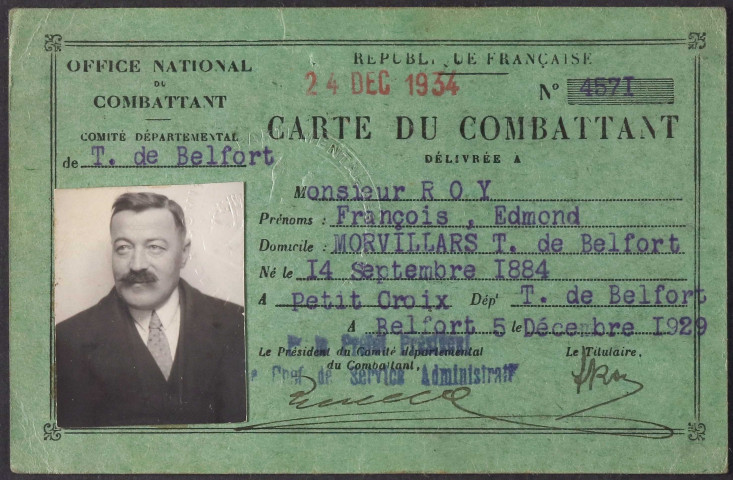 OFFICE NATIONAL
DU
COMBATTANT
COMITÉ DÉPARTEMENTAL
de T. de Belfort
REPUBLIQUE FRANÇAISE
24 DEC 1934
N° 457I
CARTE DU COMBATTANT
DÉLIVRÉE A
Monsieur ROY
Prénoms : François, Edmond
Domicile : MORVILLARS T. de Belfort
Né le I4 Septembre I884
A Petit Croix Dépt T. de Belfort
A Belfort 5 le Décembre I929
Président
Le Président du Comité départemental
du Combattant,
Le Titulaire,
Chef de Service Administratif